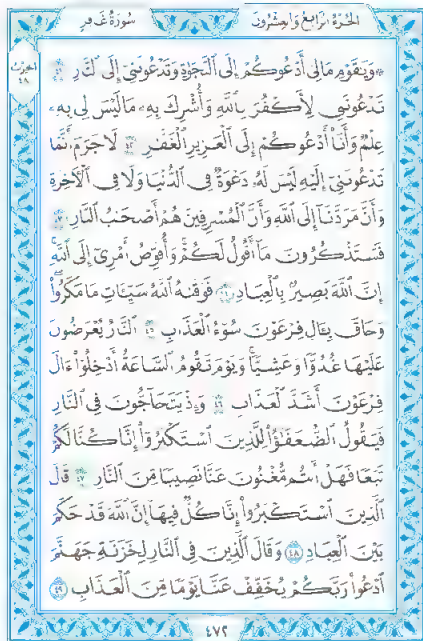 الجزء الرابع والعشرون سورة غافر
الحزب ٤٨
۞ وَيَٰقَوْمِ مَا لِىٓ أَدْعُوكُمْ إِلَى ٱلنَّجَوٰةِ وَتَدْعُونَنِىٓ إِلَى ٱلنَّارِ ٤١
تَدْعُونَنِى لِأَكْفُرَ بِٱللَّهِ وَأُشْرِكَ بِهِۦ مَا لَيْسَ لِى بِهِۦ
عِلْمٌ وَأَنَا۠ أَدْعُوكُمْ إِلَى ٱلْعَزِيزِ ٱلْغَفَّٰرِ ٤٢ لَا جَرَمَ أَنَّمَا
تَدْعُونَنِىٓ إِلَيْهِ لَيْسَ لَهُۥ دَعْوَةٌ فِى ٱلدُّنْيَا وَلَا فِى ٱلْأَخِرَةِ
وَأَنَّ مَرَدَّنَآ إِلَى ٱللَّهِ وَأَنَّ ٱلْمُسْرِفِينَ هُمْ أَصْحَٰبُ ٱلنَّارِ ٤٣
فَسَتَذْكُرُونَ مَآ أَقُولُ لَكُمْ ۚ وَأُفَوِّضُ أَمْرِىٓ إِلَى ٱللَّهِ ۚ
إِنَّ ٱللَّهَ بَصِيرٌۢ بِٱلْعِبَادِ ٤٤ فَوَقَىٰهُ ٱللَّهُ سَيِّـَٔاتِ مَا مَكَرُوا۟ ۖ
وَحَاقَ بِـَٔالِ فِرْعَوْنَ سُوٓءُ ٱلْعَذَابِ ٤٥ ٱلنَّارُ يُعْرَضُونَ
عَلَيْهَا غُدُوًّا وَعَشِيًّا ۖ وَيَوْمَ تَقُومُ ٱلسَّاعَةُ أَدْخِلُوٓا۟ ءَالَ
فِرْعَوْنَ أَشَدَّ ٱلْعَذَابِ ٤٦ وَإِذْ يَتَحَآجُّونَ فِى ٱلنَّارِ
فَيَقُولُ ٱلضُّعَفَٰٓؤُا۟ لِلَّذِينَ ٱسْتَكْبَرُوٓا۟ إِنَّا كُنَّا لَكُمْ
تَبَعًا فَهَلْ أَنتُم مُّغْنُونَ عَنَّا نَصِيبًا مِّنَ ٱلنَّارِ ٤٧ قَالَ
ٱلَّذِينَ ٱسْتَكْبَرُوٓا۟ إِنَّا كُلٌّ فِيهَآ إِنَّ ٱللَّهَ قَدْ حَكَمَ
بَيْنَ ٱلْعِبَادِ ٤٨ وَقَالَ ٱلَّذِينَ فِى ٱلنَّارِ لِخَزَنَةِ جَهَنَّمَ
ٱدْعُوا۟ رَبَّكُمْ يُخَفِّفْ عَنَّا يَوْمًا مِّنَ ٱلْعَذَابِ ٤٩
٤٧٢